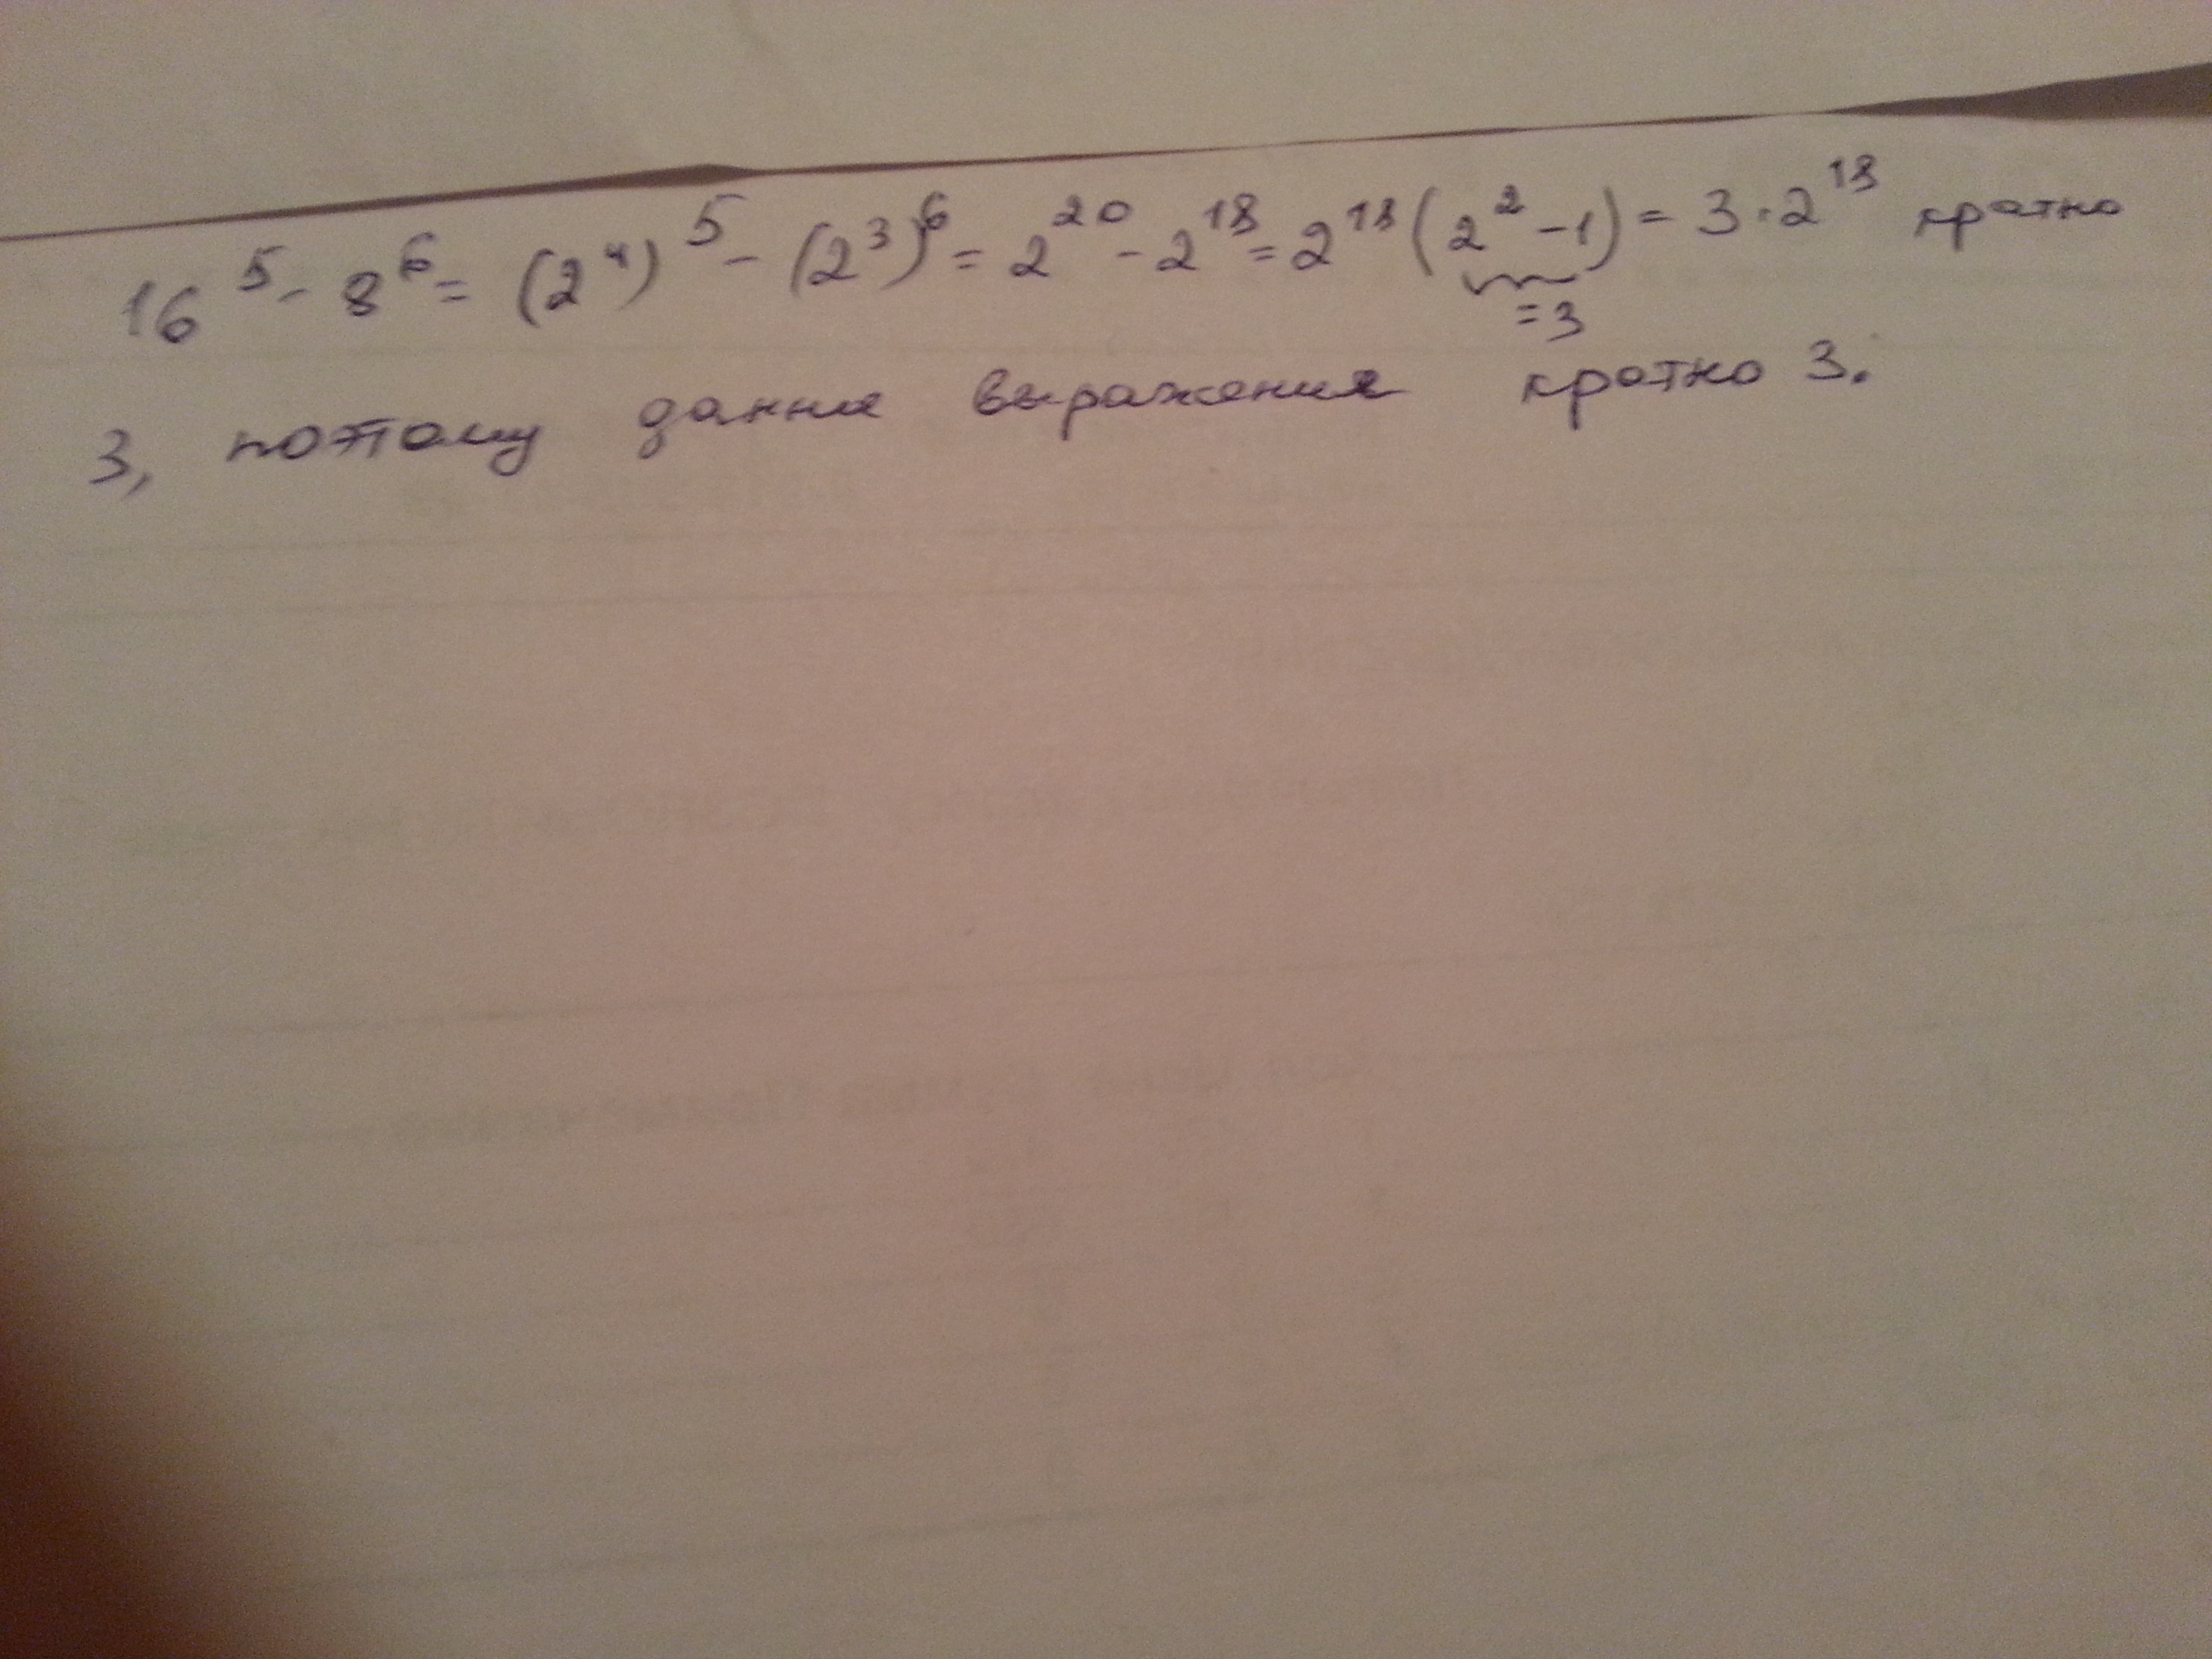 16⁵ - 8⁶ = (2⁴)⁵ - (2³)⁶ = 2²⁰ - 2¹⁸ = 2¹⁸(2² - 1) = 3 · 2¹⁸ кратно
= 3
3, поэтому данне выражения кратно 3.